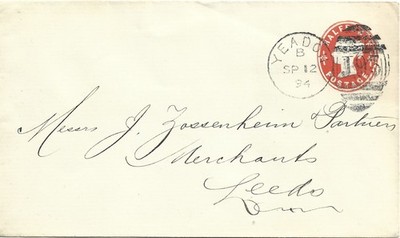 YEADO
B
SP 12
94
HALFP
POSTAGE
Messrs J. Zossenheim Partners
Merchants
Leeds